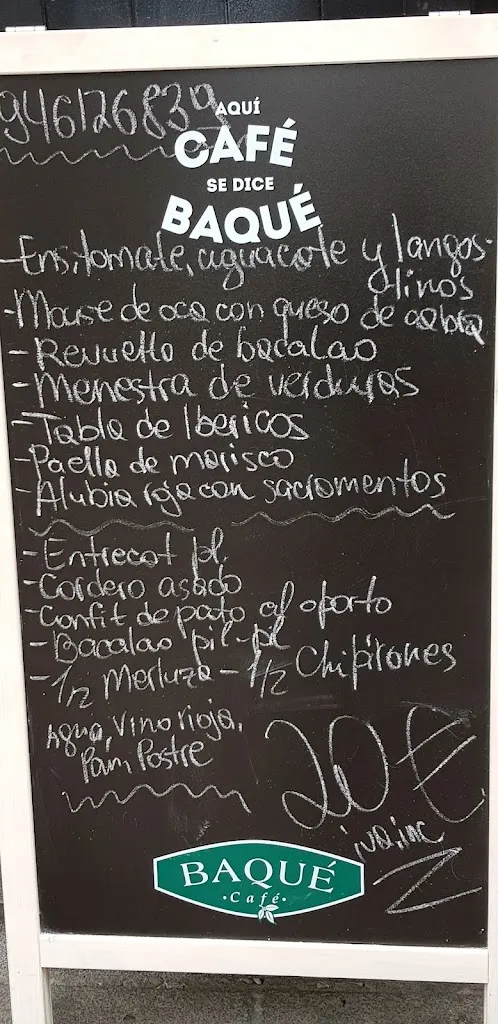 946126839
AQUÍ
CAFÉ
SE DICE
BAQUÉ
-Ens, tomate, aguacate y langos-
tinos
-Mouse de oca con queso de cabra
- Revuelto de bacalao
- Menestra de verduras
- Tabla de Ibericos
- Paella de marisco
- Alubia roja con sacramentos
- Entrecot pl.
- Cordero asado
- Confit de pato al oporto
- Bacalao pil-pil
- 1/2 Merluza - 1/2 Chipirones
Agua, Vino rioja,
Pam, Postre
20€
iva.inc
BAQUÉ
·Café·